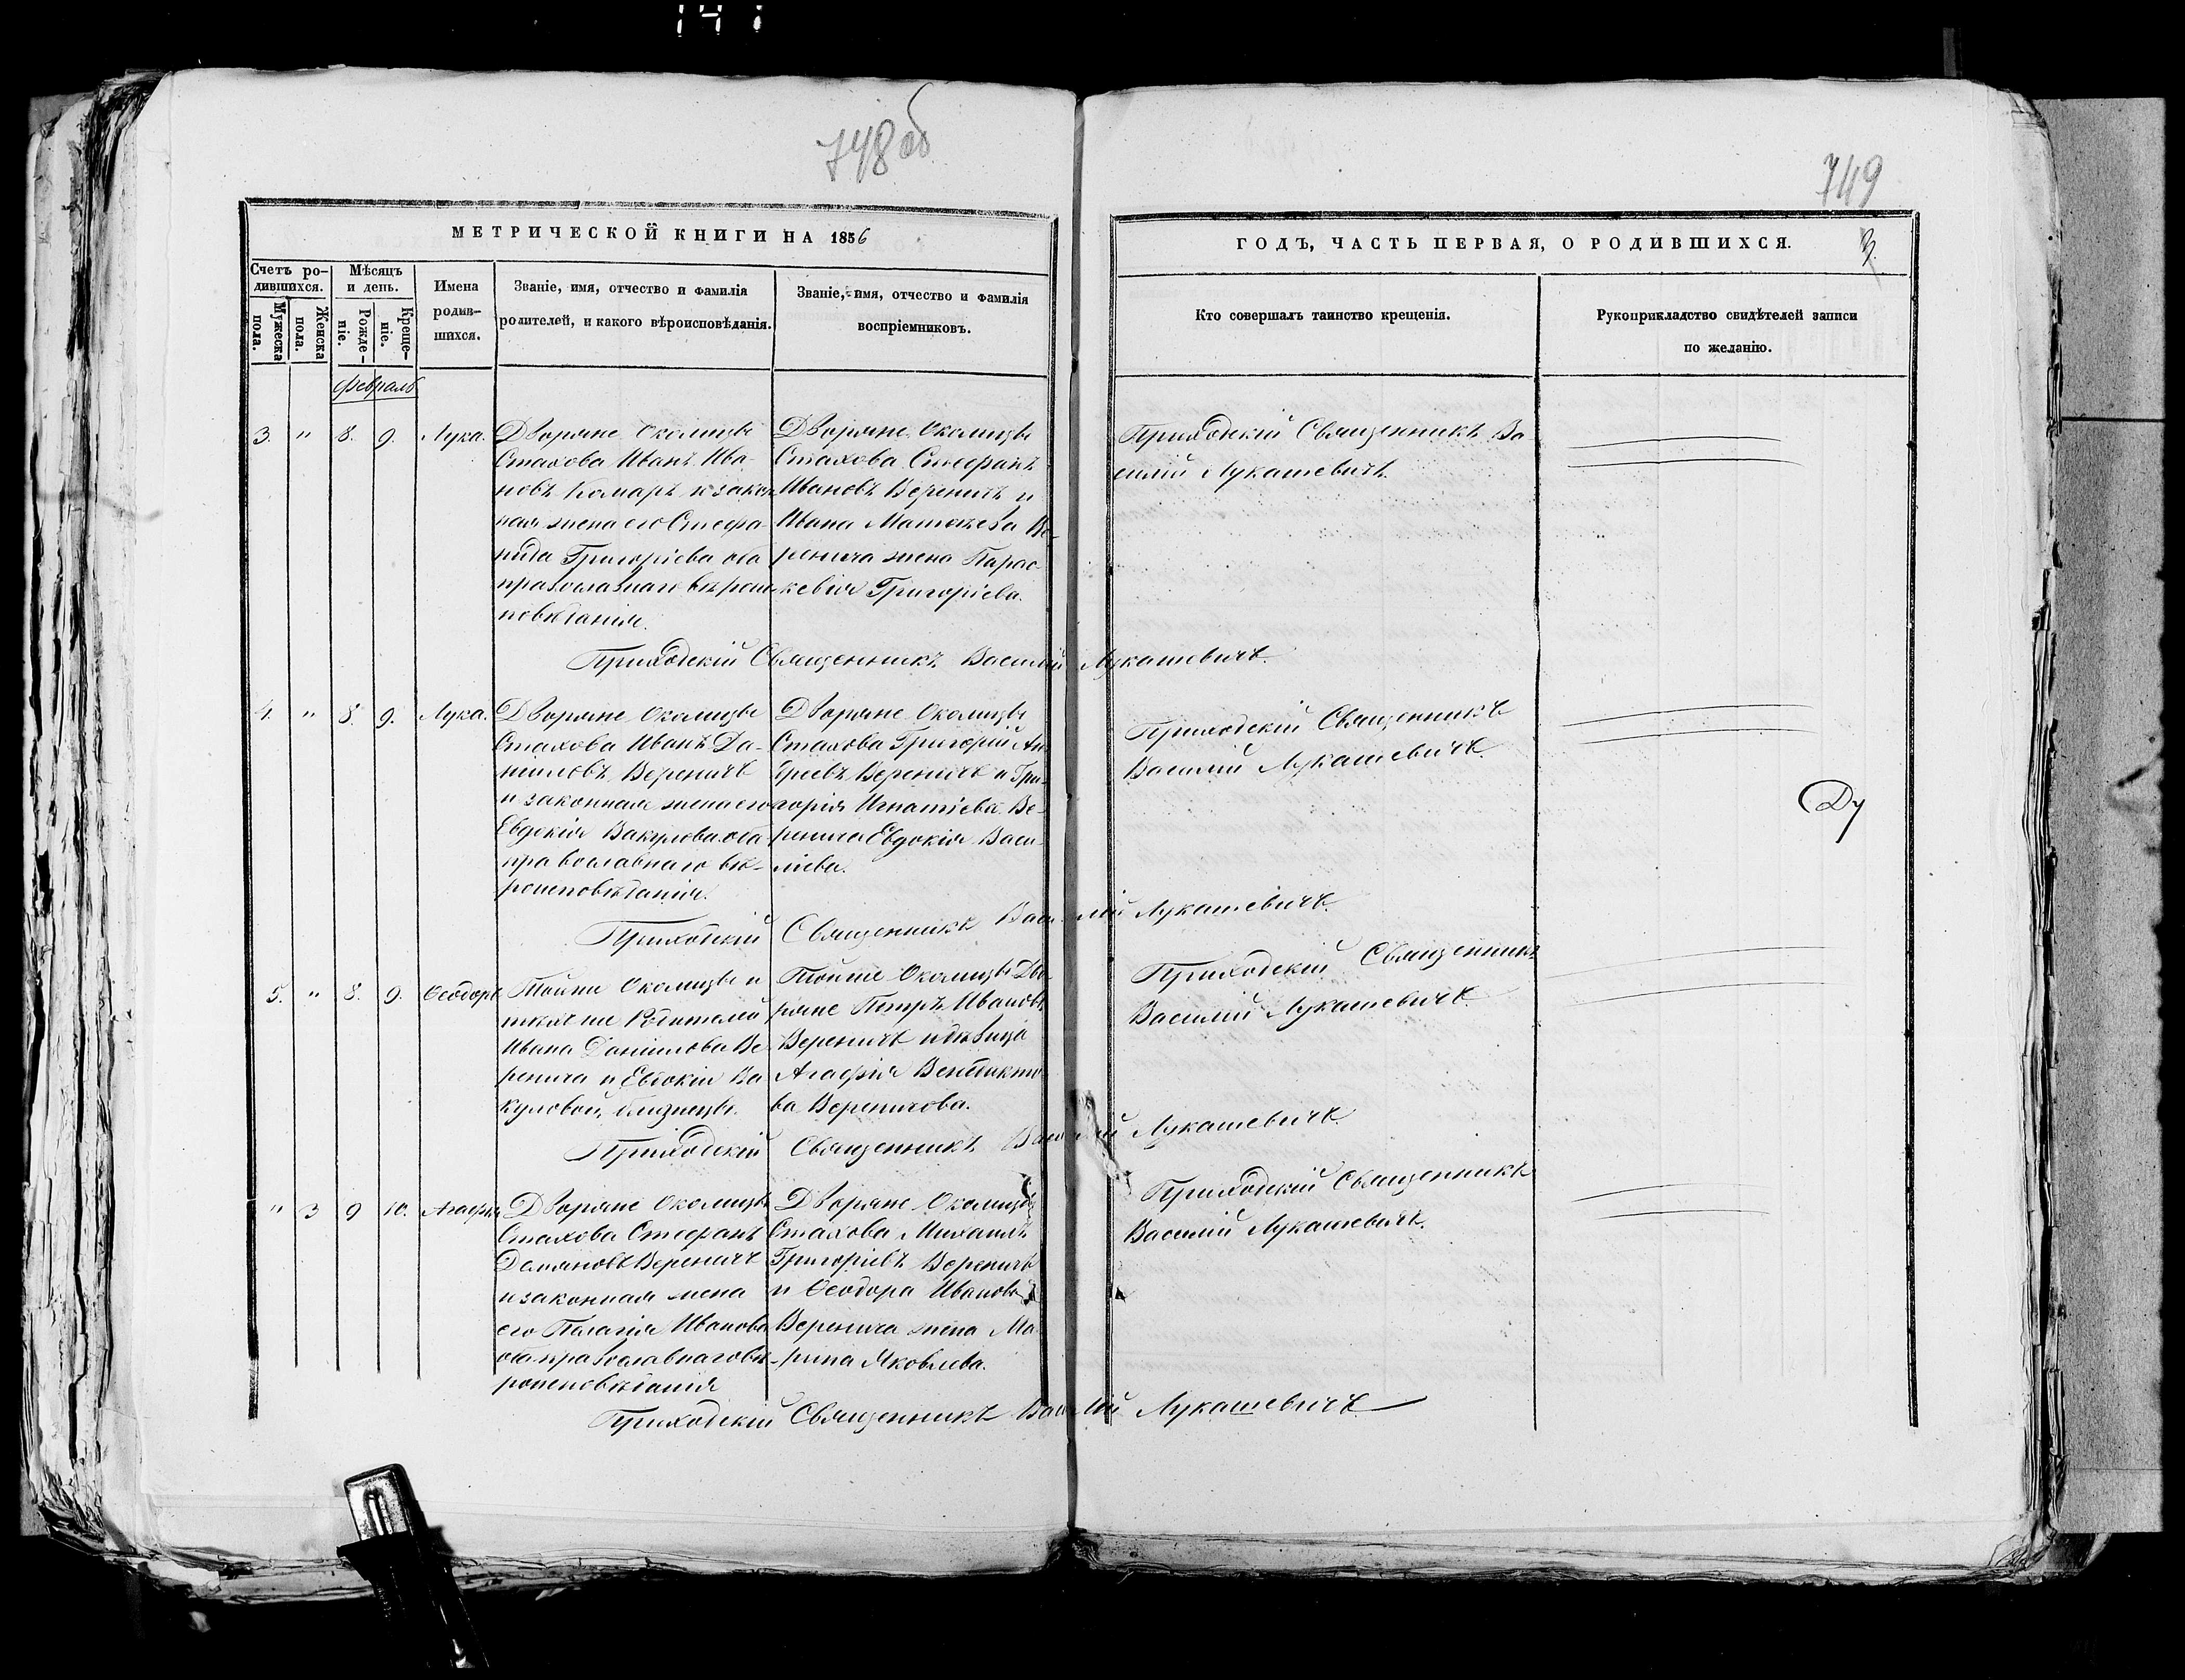 141
748 об
749
МЕТРИЧЕСКОЙ КНИГИ НА 1856
ГОДЪ, ЧАСТЬ ПЕРВАЯ, О РОДИВШИХСЯ.
3.
Счетъ ро-
дившихся.
Мужеска
пола.
Женска
пола.
Мѣсяцъ
и день.
Рожде-
ніе.
Креще-
ніе.
Имена
родив-
шихся.
Званіе, имя, отчество и фамилія
родителей, и какого вѣроисповѣданія.
Званіе, имя, отчество и фамилія
воспріемниковъ.
Кто совершалъ таинство крещенія.
Рукоприкладство свидѣтелей записи
по желанію.
Февраль
3. " 8. 9. Лука.
Дворяне Околицы
Стахова Иванъ Ива-
новъ Комаръ и закон
ная жена его Стефа-
нида Григоріева оба
православнаго вѣроис-
повѣданія.
Дворяне Околицы
Стахова Стефанъ
Ивановъ Вереничъ и
Ивана Матвѣева Ве-
ренича жена Парас
кевія Григоріева.
Приходскій Священникъ Ва-
силій Лукашевичъ.
Приходскій Священникъ Василій Лукашевичъ.
4. " 8. 9. Лука.
Дворяне Околицы
Стахова Иванъ Да-
ніиловъ Вереничъ
и законная жена его
Евдокія Вакулова оба
православнаго вѣ-
роисповѣданія.
Дворяне Околицы
Стахова Григорій Ан
дреевъ Вереничъ и Гри-
горія Игнатіева Ве-
ренича Евдокія Васи
ліева.
Приходскій Священникъ
Василій Лукашевичъ.
Ду
Приходскій Священникъ Василій Лукашевичъ.
5. " 8. 9. Ѳеодоръ
Тойже Околицы и
тѣхъ же Родителей
Ивана Даніилова Ве
ренича и Евдокіи Ва
куловой, близнецы.
Тойже Околицы Дво
ряне Петръ Ивановъ
Вереничъ и дѣвица
Агафія Венедикто
ва Вереничова.
Приходскій Священникъ
Василій Лукашевичъ.
Приходскій Священникъ Василій Лукашевичъ.
" 3 9 10. Агафія
Дворяне Околицы
Стахова Стефанъ
Демяновъ Вереничъ
и законная жена
его Пелагія Иванова
оба православнаго вѣ-
роисповѣданія
Дворяне Околицы
Стахова Михаилъ
Григоріевъ Вереничъ
и Ѳеодора Иванова
Веренича жена Ма
рина Яковлева.
Приходскій Священникъ
Василій Лукашевичъ.
Приходскій Священникъ Василій Лукашевичъ.